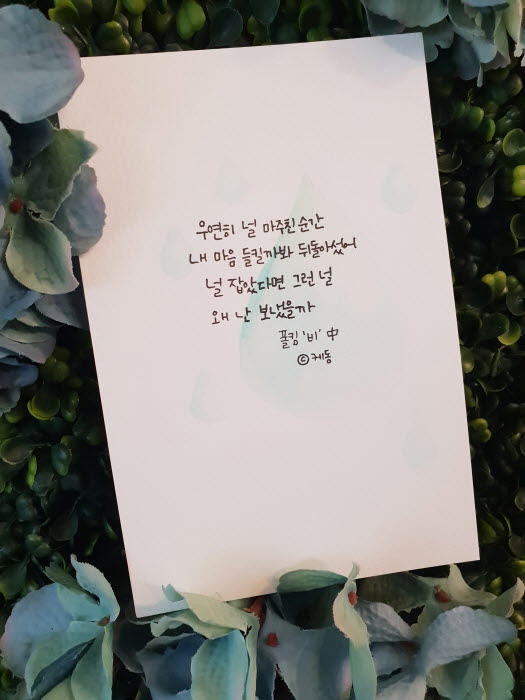 우연히 널 마주친 순간
내 마음 들킬까봐 뒤돌아섰어
널 잡았다면 그런 널
왜 난 보냈을까
폴킴 '비' 中
©케동